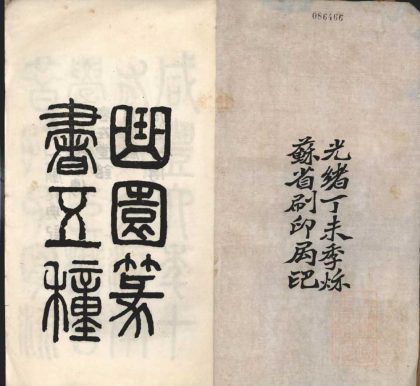 086466
光緒丁未季秌
蘇省刷印局印
曲園篆
書五種